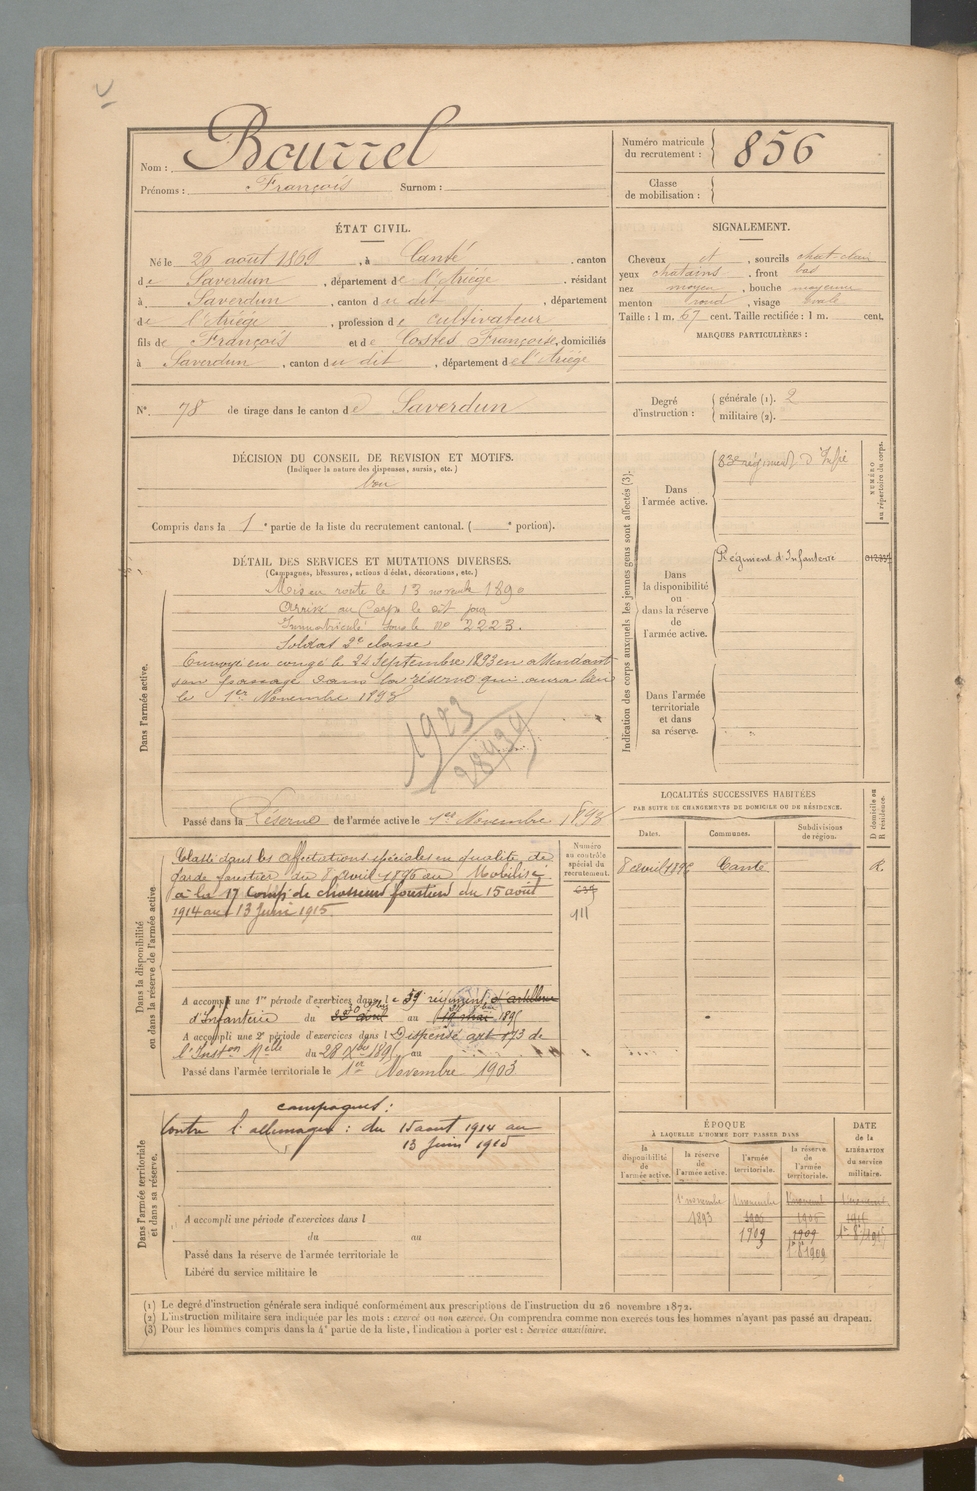 Nom : Bourrel
Prénoms : François Surnom :
Numéro matricule du recrutement : 856
Classe de mobilisation :
ÉTAT CIVIL.
Né le 26 août 1869, à Canté, canton
de Saverdun, département de l'Ariége, résidant
à Saverdun, canton du dit, département
de l'Ariége, profession de cultivateur
fils de François et de Costes Françoise, domiciliés
à Saverdun, canton du dit, département de l'Ariége
N°. 78 de tirage dans le canton de Saverdun
SIGNALEMENT.
Cheveux et, sourcils chat clair
yeux chatains, front bas
nez moyen, bouche moyenne
menton rond, visage ovale
Taille : 1 m. 67 cent. Taille rectifiée : 1 m. cent.
MARQUES PARTICULIÈRES :
Degré d'instruction :
générale (1). 2
militaire (2).
DÉCISION DU CONSEIL DE REVISION ET MOTIFS.
(Indiquer la nature des dispenses, sursis, etc.)
bon
Compris dans la 1e partie de la liste du recrutement cantonal. ( e portion).
DÉTAIL DES SERVICES ET MUTATIONS DIVERSES.
(Campagnes, blessures, actions d'éclat, décorations, etc.)
Dans l'armée active.
Mis en route le 13 novembre 1890
Arrivé au Corps le dit jour
Immatriculé sous le no 2223.
Soldat 2e classe
Envoyé en congé le 24 Septembre 1893 en attendant
son passage dans la réserve qui aura lieu
le 1er Novembre 1893
1923
28439
Passé dans la Réserve de l'armée active le 1er Novembre 1893
Indication des corps auxquels les jeunes gens sont affectés (3).
Dans l'armée active.
83e régiment d'Infie
NUMÉRO au répertoire du corps.
Dans la disponibilité ou dans la réserve de l'armée active.
Régiment d'Infanterie
Dans l'armée territoriale et dans sa réserve.
LOCALITÉS SUCCESSIVES HABITÉES
PAR SUITE DE CHANGEMENTS DE DOMICILE OU DE RÉSIDENCE.
Dates. Communes. Subdivisions de région. D domicile ou R résidence.
8 avril 1895 Canté R.
Dans la disponibilité ou dans la réserve de l'armée active.
Numéro au contrôle spécial du recrutement.
639
911
Classé dans les affectations spéciales en qualité de
garde forestier du 8 Avril 1895 au Mobilisé
à la 17 Comp. de chasseurs forestiers du 15 août
1914 au 13 Juin 1915.
A accompli une 1re période d'exercices dans le 59e régiment d'artillerie
d'Infanterie du 22 avril au 19 mai 1895
A accompli une 2e période d'exercices dans l Dispensé art 173 de
l'Inston Melle du 28 Xbre 1895 au
Passé dans l'armée territoriale le 1er Novembre 1903
Dans l'armée territoriale et dans sa réserve.
campagnes :
Contre l'allemagne : du 15 aout 1914 au
13 Juin 1915
A accompli une période d'exercices dans l
du au
Passé dans la réserve de l'armée territoriale le
Libéré du service militaire le
ÉPOQUE
À LAQUELLE L'HOMME DOIT PASSER DANS
la disponibilité de l'armée active. la réserve de l'armée active. l'armée territoriale. la réserve de l'armée territoriale.
DATE de la LIBÉRATION du service militaire.
1er novembre 1893
1909
1909
(1) Le degré d'instruction générale sera indiqué conformément aux prescriptions de l'instruction du 26 novembre 1872.
(2) L'instruction militaire sera indiquée par les mots : exercé ou non exercé. On comprendra comme non exercés tous les hommes n'ayant pas passé au drapeau.
(3) Pour les hommes compris dans la 4e partie de la liste, l'indication à porter est : Service auxiliaire.